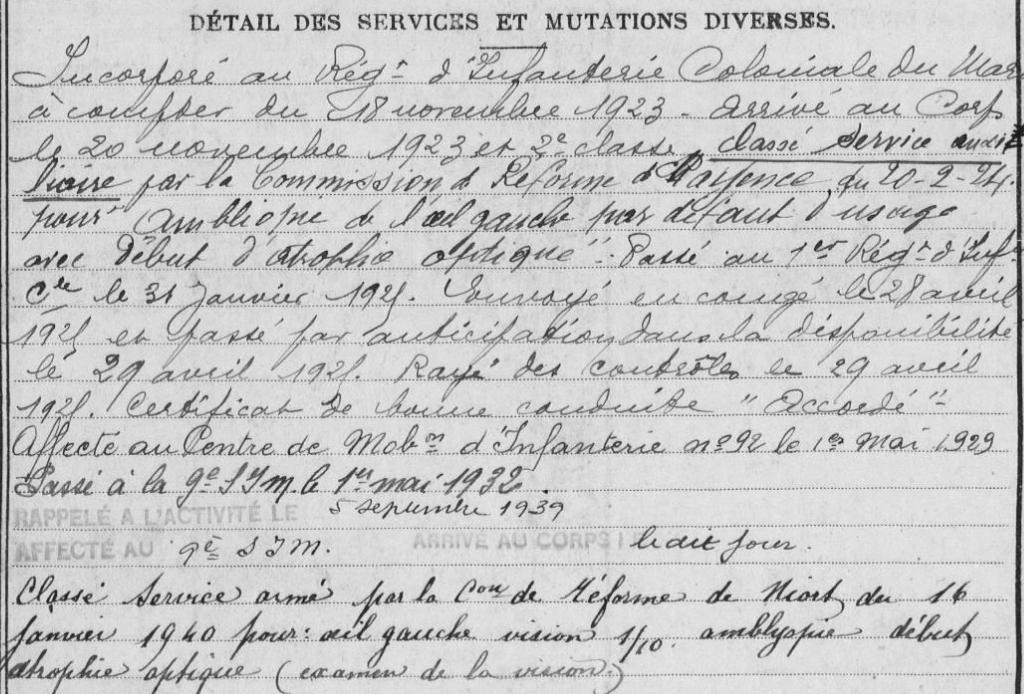 DÉTAIL DES SERVICES ET MUTATIONS DIVERSES.
Incorporé au Régt d'Infanterie Coloniale du Mar
à compter du 18 novembre 1923 - arrivé au Corps
le 20 novembre 1923 et 2e classe, classé Service auxi
liaire par la Commission de Réforme d du 20-2-24.
pour Ambliopie de l'œil gauche par défaut d'usage
avec Début d'atrophie optique". Passé au 1er Régt d'Inf
Cle le 31 Janvier 1925. Envoyé en congé le 28 avril
1925 et passé par anticipation dans la disponibilité
le 29 avril 1925. Rayé des contrôles le 29 avril
1925. Certificat de bonne conduite "Accordé"
Affecté au Centre de Mobon d'Infanterie no 92 le 1er Mai 1929
Passé à la 9e S I M. le 1er mai 1932.
RAPPELÉ A L'ACTIVITÉ LE 5 septembre 1939
AFFECTÉ AU 9e S I M. ARRIVÉ AU CORPS LE le dit jour.
Classé Service armé par la Con de Réforme de Niort du 16
janvier 1940 pour: œil gauche vision 1/10. amblyopie début
atrophie optique (examen de la vision.)